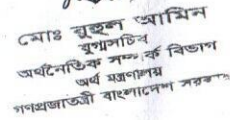 মোঃ নুরুল আমিন
যুগ্মসচিব
অর্থনৈতিক সম্পর্ক বিভাগ
অর্থ মন্ত্রণালয়
গণপ্রজাতন্ত্রী বাংলাদেশ সরকার